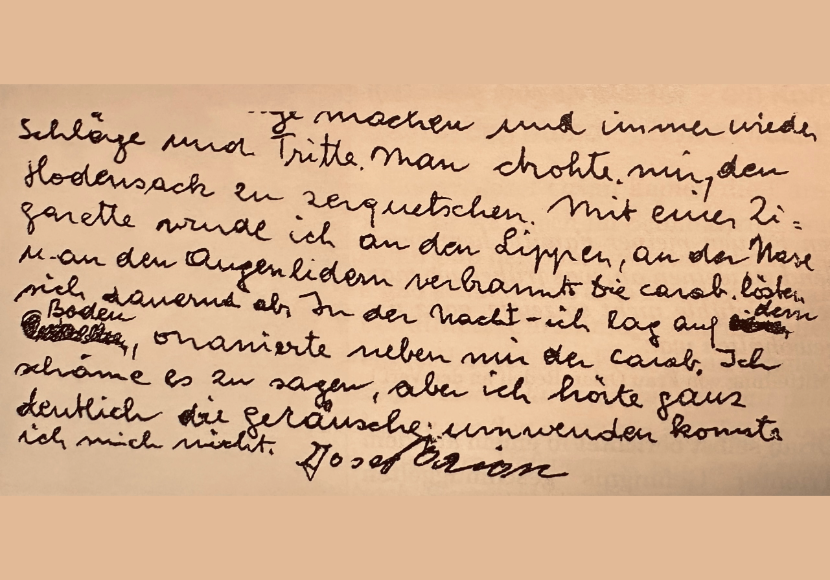 machen und immer wieder
Schläge und Tritte. Man drohte mir, den
Hodensack zu zerquetschen. Mit einer Zi=
garette wurde ich an den Lippen, an der Nase
u. an den Augenlidern verbrannt. Die carab. lösten
sich dauernd ab. In der Nacht - ich lag auf dem
Boden, onanierte neben mir der carab. Ich
schäme es zu sagen, aber ich hörte ganz
deutlich die geräusche. umwenden konnte
ich mich nicht. Josef